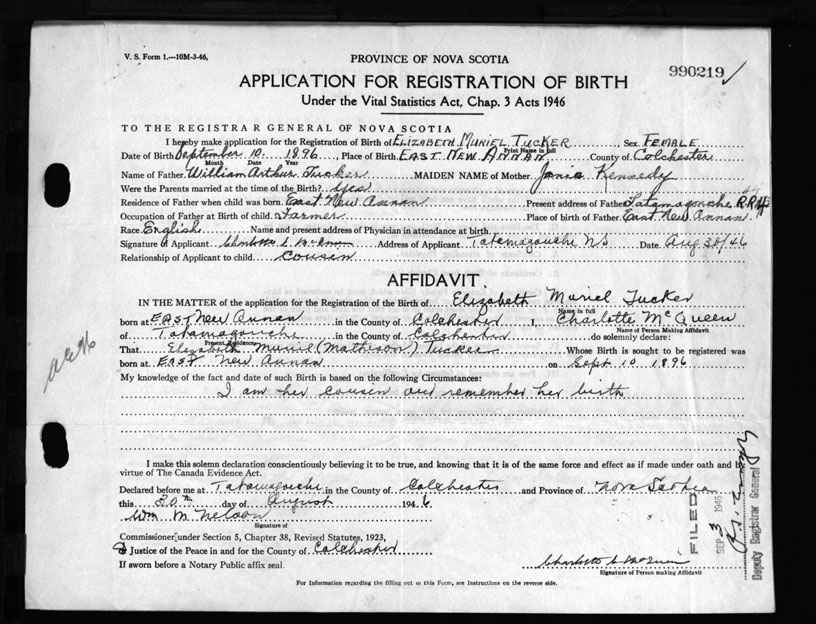 V. S. Form 1.—10M-3-46.
PROVINCE OF NOVA SCOTIA
990219
APPLICATION FOR REGISTRATION OF BIRTH
Under the Vital Statistics Act, Chap. 3 Acts 1946
TO THE REGISTRAR GENERAL OF NOVA SCOTIA
I hereby make application for the Registration of Birth of ELIZABETH MURIEL TUCKER Sex FEMALE
Print Name in full
Date of Birth September 10 1896, Place of Birth EAST NEW ANNAN County of Colchester
Month Date Year
Name of Father William Arthur Tucker MAIDEN NAME of Mother Kennedy
Were the Parents married at the time of the Birth? yes
Residence of Father when child was born East New Annan Present address of Father Tatamagouche R.R.
Occupation of Father at Birth of child Farmer Place of birth of Father East New Annan
Race English Name and present address of Physician in attendance at birth
Signature of Applicant Charlotte McQueen Address of Applicant Tatamagouche NS Date Aug 30/46
Relationship of Applicant to child Cousin
AFFIDAVIT
IN THE MATTER of the application for the Registration of the Birth of Elizabeth Muriel Tucker
Name in full
born at EAST New Annan in the County of Colchester I, Charlotte McQueen
Name of Person Making Affidavit
of Tatamagouche in the County of Colchester do solemnly declare:
Present Residence
That Elizabeth Muriel (Matheson) Tucker Whose Birth is sought to be registered was
born at EAST New Annan on Sept 10 1896
My knowledge of the fact and date of such Birth is based on the following Circumstances:
I am her cousin and remember her birth
I make this solemn declaration conscientiously believing it to be true, and knowing that it is of the same force and effect as if made under oath and by
virtue of The Canada Evidence Act.
Declared before me at Tatamagouche in the County of Colchester and Province of Nova Scotia
this 30th day of August 1946
Wm M. Nelson
Signature of
Commissioner under Section 5, Chapter 38, Revised Statutes, 1923,
Justice of the Peace in and for the County of Colchester
If sworn before a Notary Public affix seal.
Charlotte McQueen
Signature of Person making Affidavit
For Information regarding the filling out of this Form, see Instructions on the reverse side.
FILED
SEP 3 1946
Deputy Registrar General